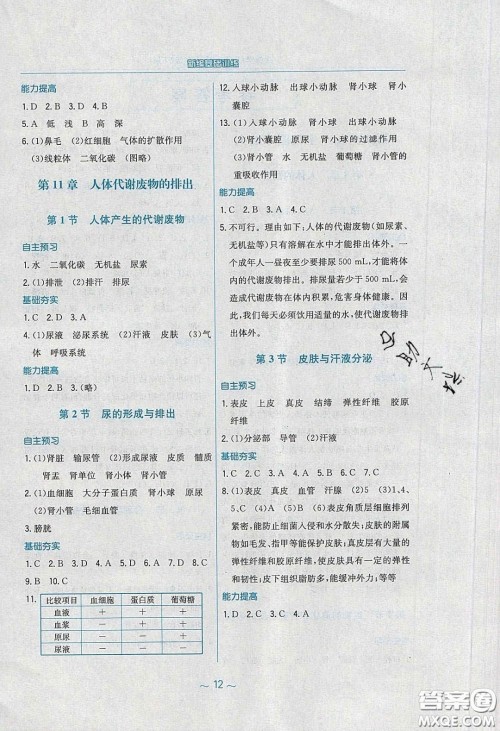 新编基础训练
能力提高
1. D  2. B  3. D  4. B
5. A  低  浅  B  高  深
6. (1)鼻毛  (2)红细胞  气体的扩散作用
(3)线粒体  二氧化碳  (图略)
第 11 章  人体代谢废物的排出
第 1 节  人体产生的代谢废物
自主预习
1. 水  二氧化碳  无机盐  尿素
2. (1)排泄  (2)排汗  排尿
基础夯实
1. C  2. A  3. B
4. (1)尿液  泌尿系统  (2)汗液  皮肤  (3)气
体  呼吸系统
能力提高
1. D  2. A  3. (略)
第 2 节  尿的形成与排出
自主预习
1. (1)肾脏  输尿管  (2)形成尿液  皮质  髓质
肾盂  肾单位  肾小体  肾小管
2. (1)血细胞  大分子蛋白质  肾小球  原尿
(2)肾小管  毛细血管
3. 膀胱
基础夯实
1. C  2. A  3. A  4. D  5. A  6. D  7. A  8. C
9. B  10. C
11.
比较项目  血细胞  蛋白质  葡萄糖
血液  +  +  +
血浆  −  +  +
原尿  −  −  +
尿液  −  −  −
12. 入球小动脉  出球小动脉  肾小球  肾小
囊腔
13. (1)入球小动脉  出球小动脉  肾小球  肾
小囊腔  原尿  肾小球的过滤作用
(3)肾小管  水  无机盐  葡萄糖  肾小管的
重吸收作用
能力提高
1. C  2. B  3. C  4. C
5. 不可行。理由如下:人体的代谢废物(如尿素、
无机盐等)只有溶解在水中才能排出体外。一
个成年人一昼夜至少要排尿 500 mL,才能将体
内的代谢废物排出。排尿量若少于 500 mL,会
造成代谢废物在体内积累,危害身体健康。因
此,我们每天必须饮用适量的水,使代谢废物排
出体外。
第 3 节  皮肤与汗液分泌
自主预习
1. 表皮  上皮  真皮  结缔  弹性纤维  胶原
纤维
2. (1)分泌部  导管  (2)汗液
基础夯实
1. C  2. C  3. A  4. C  5. D  6. A  7. A
8. (1)表皮  真皮  血管  汗腺  (2)5  (3)1、4、
5、C  (4)2  (5)表皮角质层细胞排列
紧密,能防止细菌入侵和水分散失;皮肤的附属
物如毛发、指甲等能保护皮肤;真皮层有大量
弹性纤维和胶原纤维,使皮肤具有一定的弹性
和韧性;皮下组织脂肪多,能缓冲外力;
能力提高
1. D  2. C  3. A  4. C
～ 12 ～
答案圈
MXQE.COM